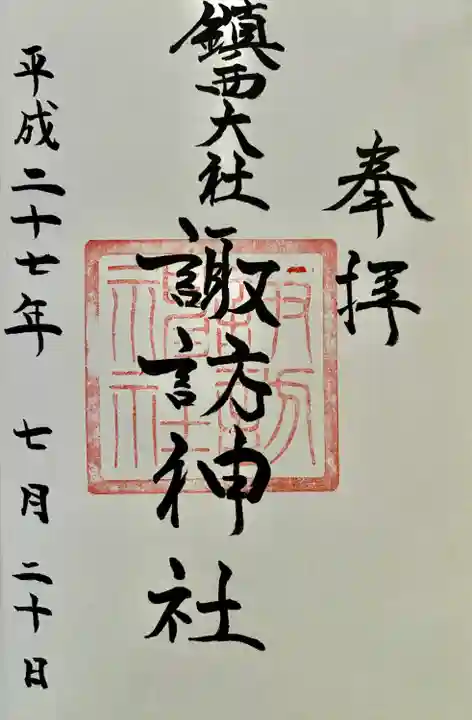 奉拝
鎮西大社
諏訪神社
平成二十七年 七月二十日